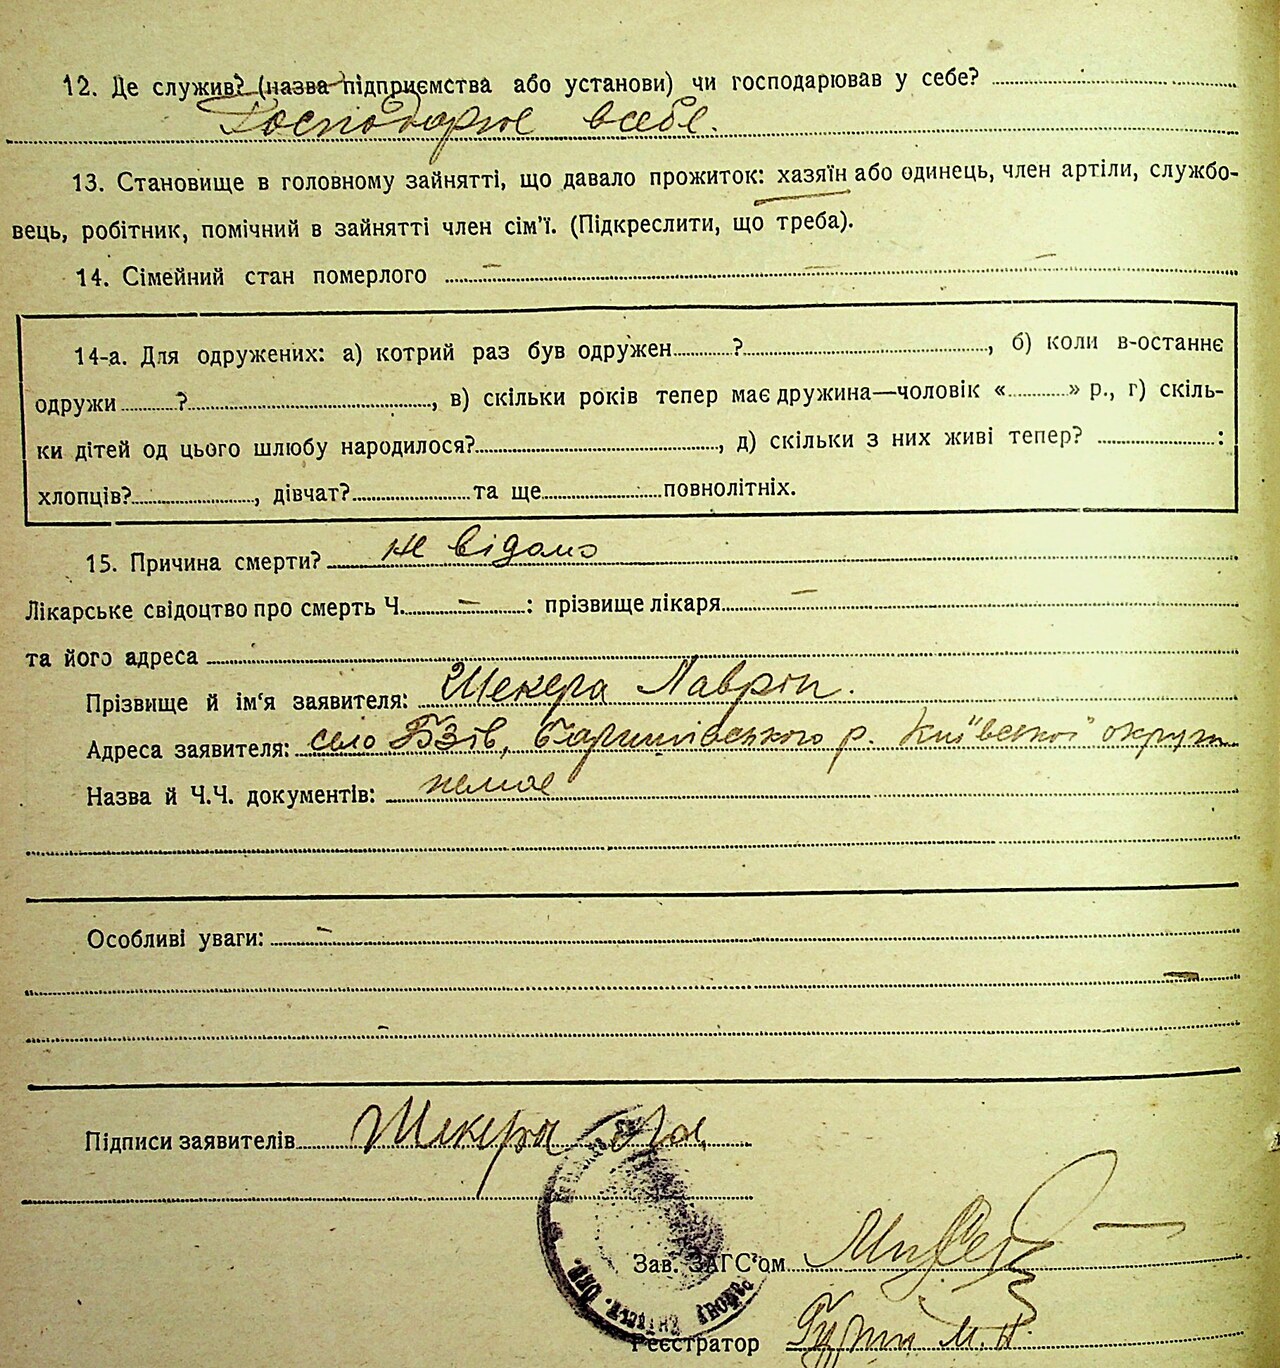 12. Де служив? (назва підприємства або установи) чи господарював у себе?
Господарює всебе.
13. Становище в головному зайнятті, що давало прожиток: хазяїн або одинець, член артіли, службо-
вець, робітник, помічний в зайнятті член сім'ї. (Підкреслити, що треба).
14. Сімейний стан померлого – – –
14-а. Для одружених: а) котрий раз був одружен ?, б) коли в-останнє
одружи ?, в) скільки років тепер має дружина—чоловік « » р., г) скіль-
ки дітей од цього шлюбу народилося?, д) скільки з них живі тепер? :
хлопців?, дівчат? та ще повнолітніх.
15. Причина смерти? не відомо
Лікарське свідоцтво про смерть Ч. – : прізвище лікаря –
та його адреса
Прізвище й ім'я заявителя: Шекера Лаврін.
Адреса заявителя: село Бзів, Баришівського р. Київської округи
Назва й Ч.Ч. документів: немає
Особливі уваги: –
Підписи заявителів Шекера Ла
Зав. ЗАГС'ом
Реєстратор М.